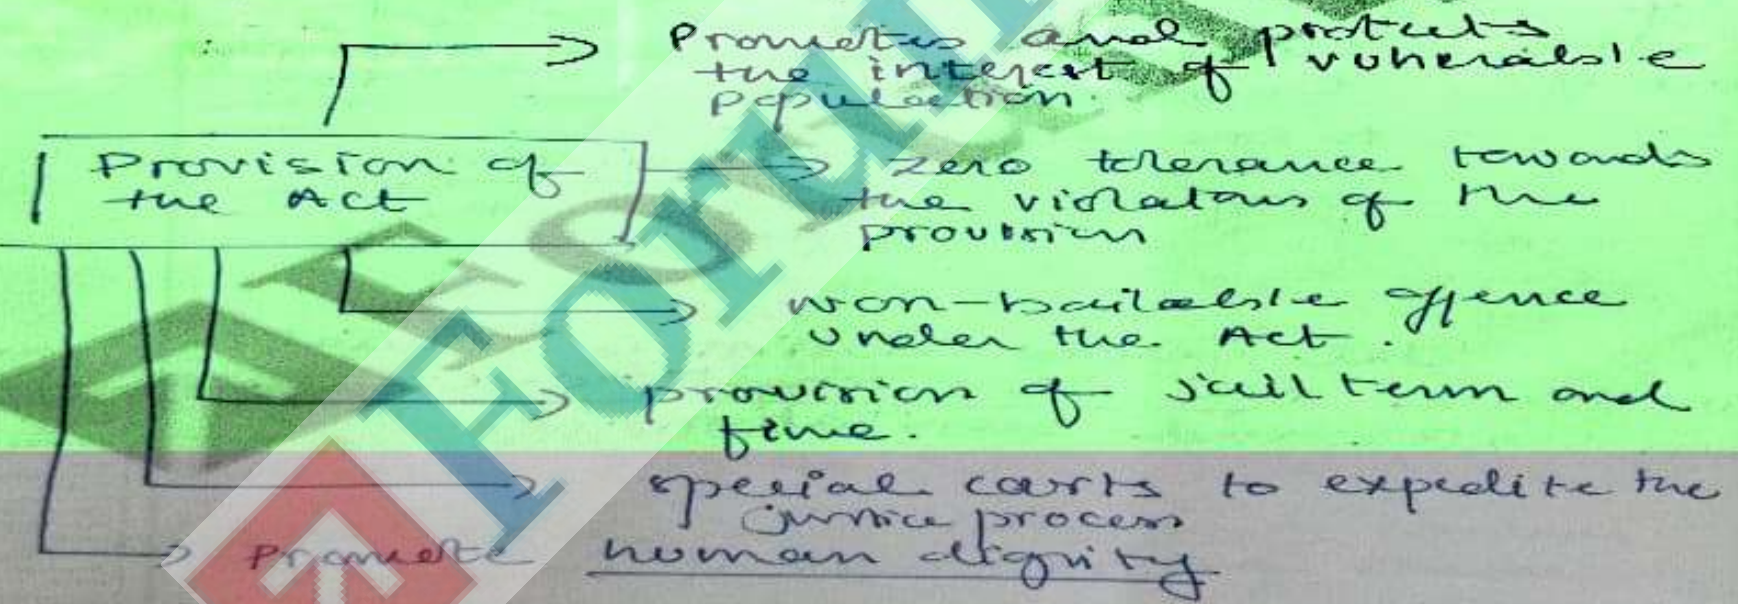 Promotes and protects
the interest of vulnerable
population.
Provision of
the Act
zero tolerance towards
the violators of the
provision
non-bailable offence
under the Act.
provision of jail term and
fine.
special courts to expedite the
justice process
Promote human dignity
Forum